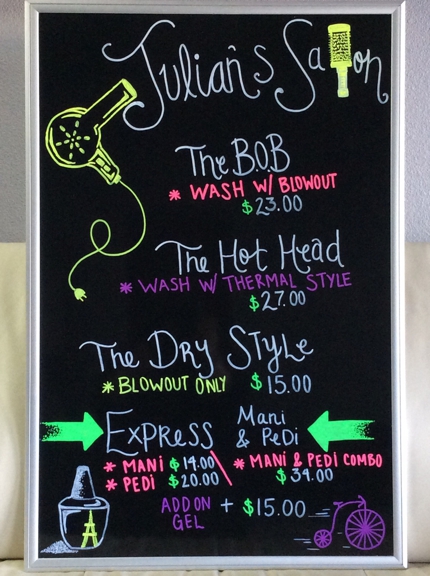 Julian's Salon
The B.O.B
* WASH W/ BLOWOUT
$23.00
The Hot Head
* WASH W/ THERMAL STYLE
$27.00
The Dry Style
* BLOWOUT ONLY $15.00
Express Mani & Pedi
* MANI $14.00
* PEDI $20.00
* MANI & PEDI COMBO
$34.00
ADD ON GEL + $15.00